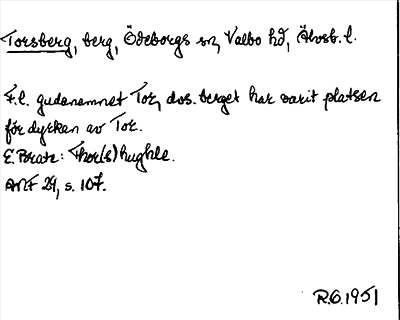 Torsberg, berg, Ödeborgs sn, Valbo hd, Älvsb. l.
F.l. gudanamnet Tor, dvs. berget har varit platsen
för dyrkan av Tor.
E. Brate: Thor(s)hughle.
ANF 29, s. 107.
R.O. 1951